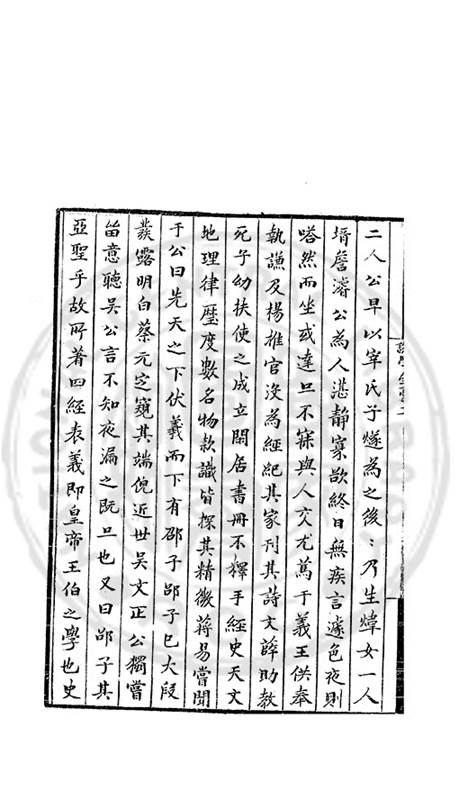 二人公早以宰氏子燧為之後〻乃生煒女一人
壻詹濬公為人湛靜寡欲終日無疾言遽色夜則
嗒然而坐或達旦不寐與人交尤篤于義王供奉
執謙及楊推官沒為經紀其家刋其詩文薛助教
死子幼扶使之成立閒居書冊不釋手經史天文
地理律曆度數名物款識皆探其精微蔣易嘗聞
于公曰先天之下伏羲而下有邵子邵子已大段
發露明白蔡元定窺其端倪近世吴文正公獨嘗
留意聽吴公言不知夜漏之既旦也又曰邵子其
亞聖乎故所著四經表義即皇帝王伯之學也史